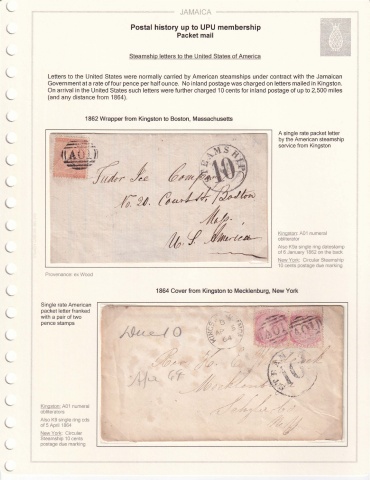 JAMAICA
Postal history up to UPU membership
Packet mail
Steamship letters to the United States of America
Letters to the United States were normally carried by American steamships under contract with the Jamaican
Government at a rate of four pence per half ounce. No inland postage was charged on letters mailed in Kingston.
On arrival in the United States such letters were further charged 10 cents for inland postage of up to 2,500 miles
(and any distance from 1864).
1862 Wrapper from Kingston to Boston, Massachusetts
A single rate packet letter
by the American steamship
service from Kingston
A01
STEAMSHIP
10
Tudor Ice Company
No. 20. Court St. Boston
Mass.
U.S. America
Kingston: A01 numeral
obliterator
Also K9a single ring datestamp
of 6 January 1862 on the back
New York: Circular Steamship
10 cents postage due marking
Provenance: ex Wood
1864 Cover from Kingston to Mecklenburg, New York
Single rate American
packet letter franked
with a pair of two
pence stamps
Due 10
64
A01
A01
STEAM
10
Kingston: A01 numeral
obliterators
Also K9 single ring cds
of 5 April 1864
New York: Circular
Steamship 10 cents
postage due marking